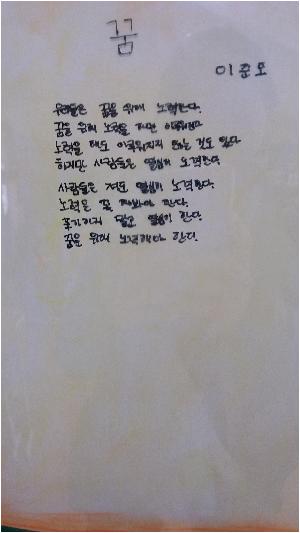 꿈
이준호
우리들은 꿈을 위해 노력한다.
꿈을 위해 노력을 하면 이루어진다
노력을 해도 이루워지지 않는 것도 있다
하지만 사람들은 열심히 노력한다
사람들은 저도 열심히 노력한다.
노력은 꼭 해봐야 한다.
포기하지 말고 열심히 한다.
꿈을 위해 노력해야 한다.